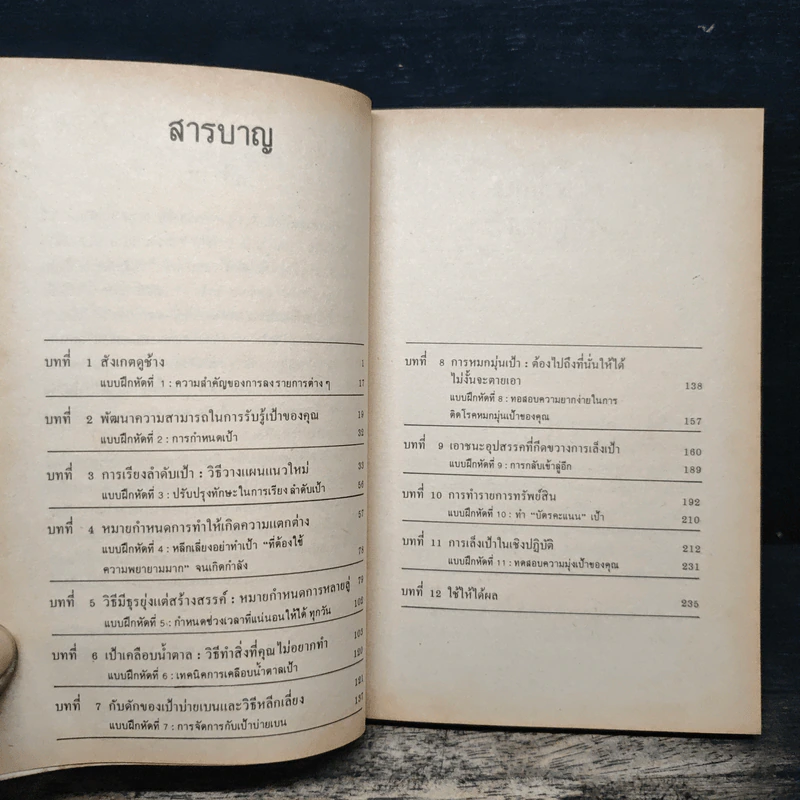 สารบาญ
บทที่ 1 สังเกตดูช้าง 1
แบบฝึกหัดที่ 1 : ความสำคัญของการลงรายการต่าง ๆ 17
บทที่ 2 พัฒนาความสามารถในการรับรู้เป้าของคุณ 19
แบบฝึกหัดที่ 2 : การกำหนดเป้า 32
บทที่ 3 การเรียงลำดับเป้า : วิธีวางแผนแนวใหม่ 33
แบบฝึกหัดที่ 3 : ปรับปรุงทักษะในการเรียงลำดับเป้า 56
บทที่ 4 หมายกำหนดการทำให้เกิดความแตกต่าง 57
แบบฝึกหัดที่ 4 : หลีกเลี่ยงอย่าทำเป้า "ที่ต้องใช้
ความพยายามมาก" จนเกิดกำลัง 78
บทที่ 5 วิธีมีธุรยุ่งแต่สร้างสรรค์ : หมายกำหนดการหลายลู่ 79
แบบฝึกหัดที่ 5 : กำหนดช่วงเวลาที่แน่นอนให้ได้ ทุกวัน 102
บทที่ 6 เป้าเคลือบน้ำตาล : วิธีทำสิ่งที่คุณไม่อยากทำ 103
แบบฝึกหัดที่ 6 : เทคนิคการเคลือบน้ำตาลเป้า 120
บทที่ 7 กับดักของเป้าบ่ายเบนและวิธีหลีกเลี่ยง 121
แบบฝึกหัดที่ 7 : การจัดการกับเป้าบ่ายเบน 137
บทที่ 8 การหมกมุ่นเป้า : ต้องไปถึงที่นั่นให้ได้
ไม่งั้นจะตายเอา 138
แบบฝึกหัดที่ 8 : ทอสอบความยากง่ายในการ
ติดโรคหมกมุ่นเป้าของคุณ 157
บทที่ 9 เอาชนะอุปสรรคที่กีดขวางการเล็งเป้า 160
แบบฝึกหัดที่ 9 : การกลับเข้าสู่อีก 189
บทที่ 10 การทำรายการทรัพย์สิน 192
แบบฝึกหัดที่ 10 : ทำ "บัตรคะแนน" เป้า 210
บทที่ 11 การเล็งเป้าในเชิงปฏิบัติ 212
แบบฝึกหัดที่ 11 : ทดสอบความมุ่งเป้าของคุณ 231
บทที่ 12 ใช้ให้ได้ผล 235